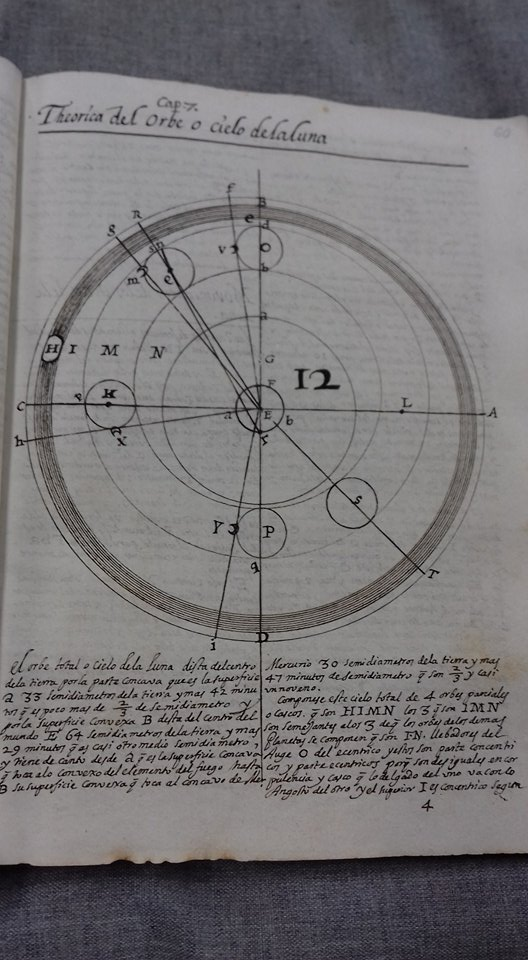 Cap 7.
Theorica del Orbe o cielo de la luna
f
B
R
g
e
d
V
O
m
e
b
a
H I M N
G
F
12
H
C
E
L
A
a
b
h
X
S
V
P
q
T
i
D
El orbe total o cielo de la luna dista del centro
de la tierra por la parte concava que es la superficie
a 33 semidiametros de la tierra y mas 42 minu
tos q̃ es poco mas de 2/3 de semidiametro y
por la superficie convexa B dista del centro del
mundo E 64 semidiametros de la tierra y mas
29 minutos q̃ es casi otro medio semidiametro,
y tiene de canto desde a q̃ es la superficie concava
q̃ toca a lo convexo del elemento del fuego hasta
B su superficie convexa q̃ toca al concave de Mer
Mercurio 30 semidiametros de la tierra y mas
47 minutos de semidiametro q̃ son 2/3 y casi
un noveno.
Componese este cielo total de 4 orbes parciales
o cascos. q̃ son HIMN los 3 q̃ son IMN
son semejantes a los 3 de q̃ los orbes de los demas
Planetas se componen q̃ son IN. llebadores del
Auge O del ecentrico y estos son parte concentri
cos y parte ecentricos porq̃ son desiguales en cor
pulencia y casco q̃ lo delgado del uno va con lo
Angosto del otro y el superior I es concentico segun
4